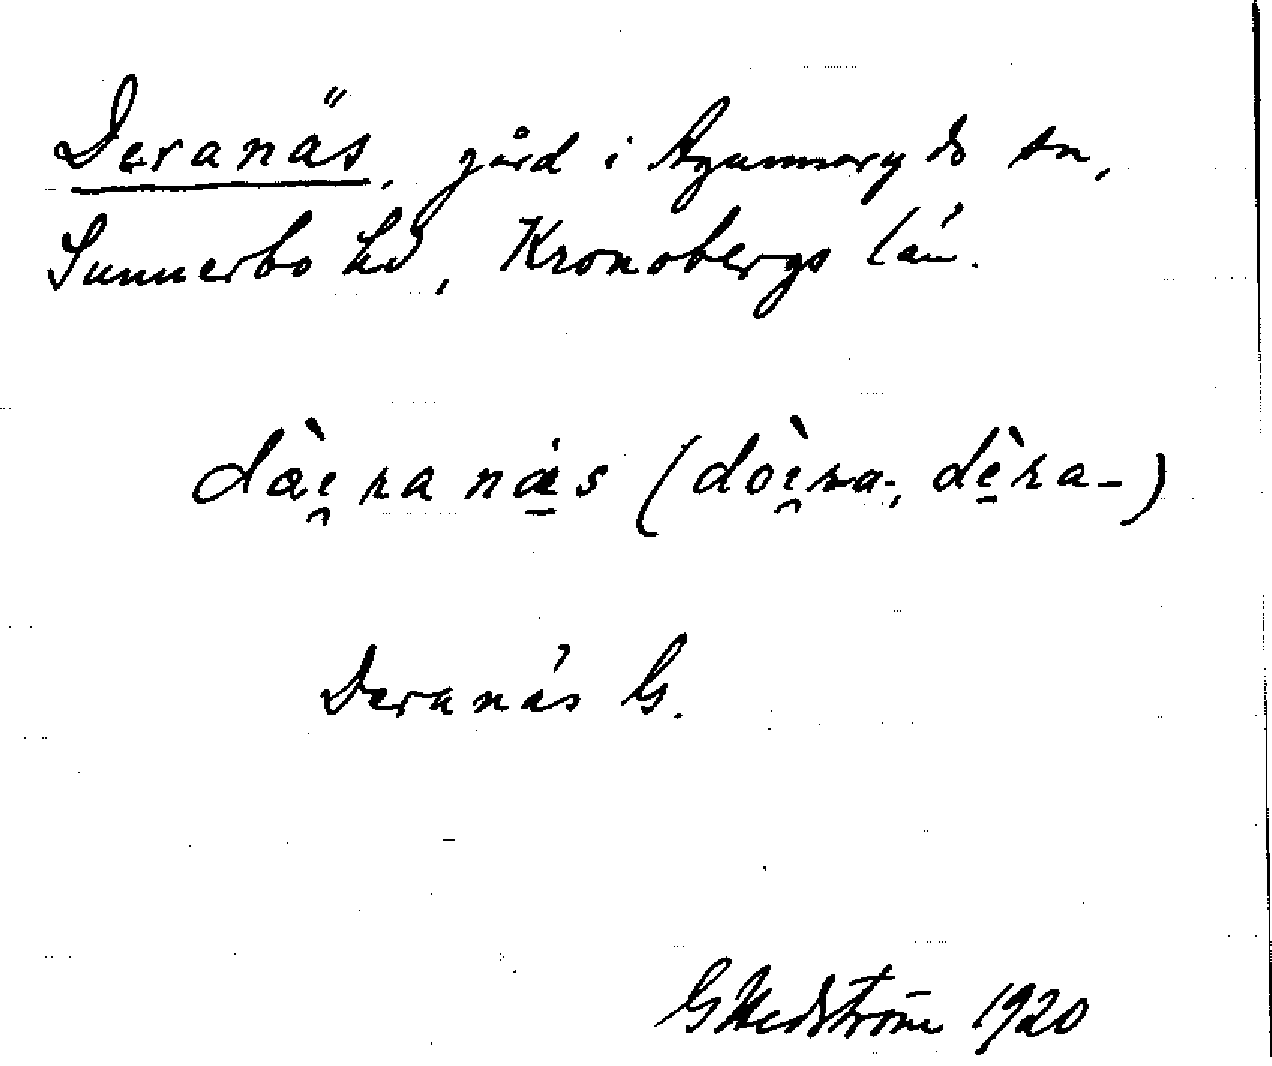 Deranäs, gård i Agunnaryds sn,
Sunnerbo hd, Kronobergs län.
dàe̯ranǽs (dòe̯ra-, dèra-)
Deranäs G.
G Hedström 1920